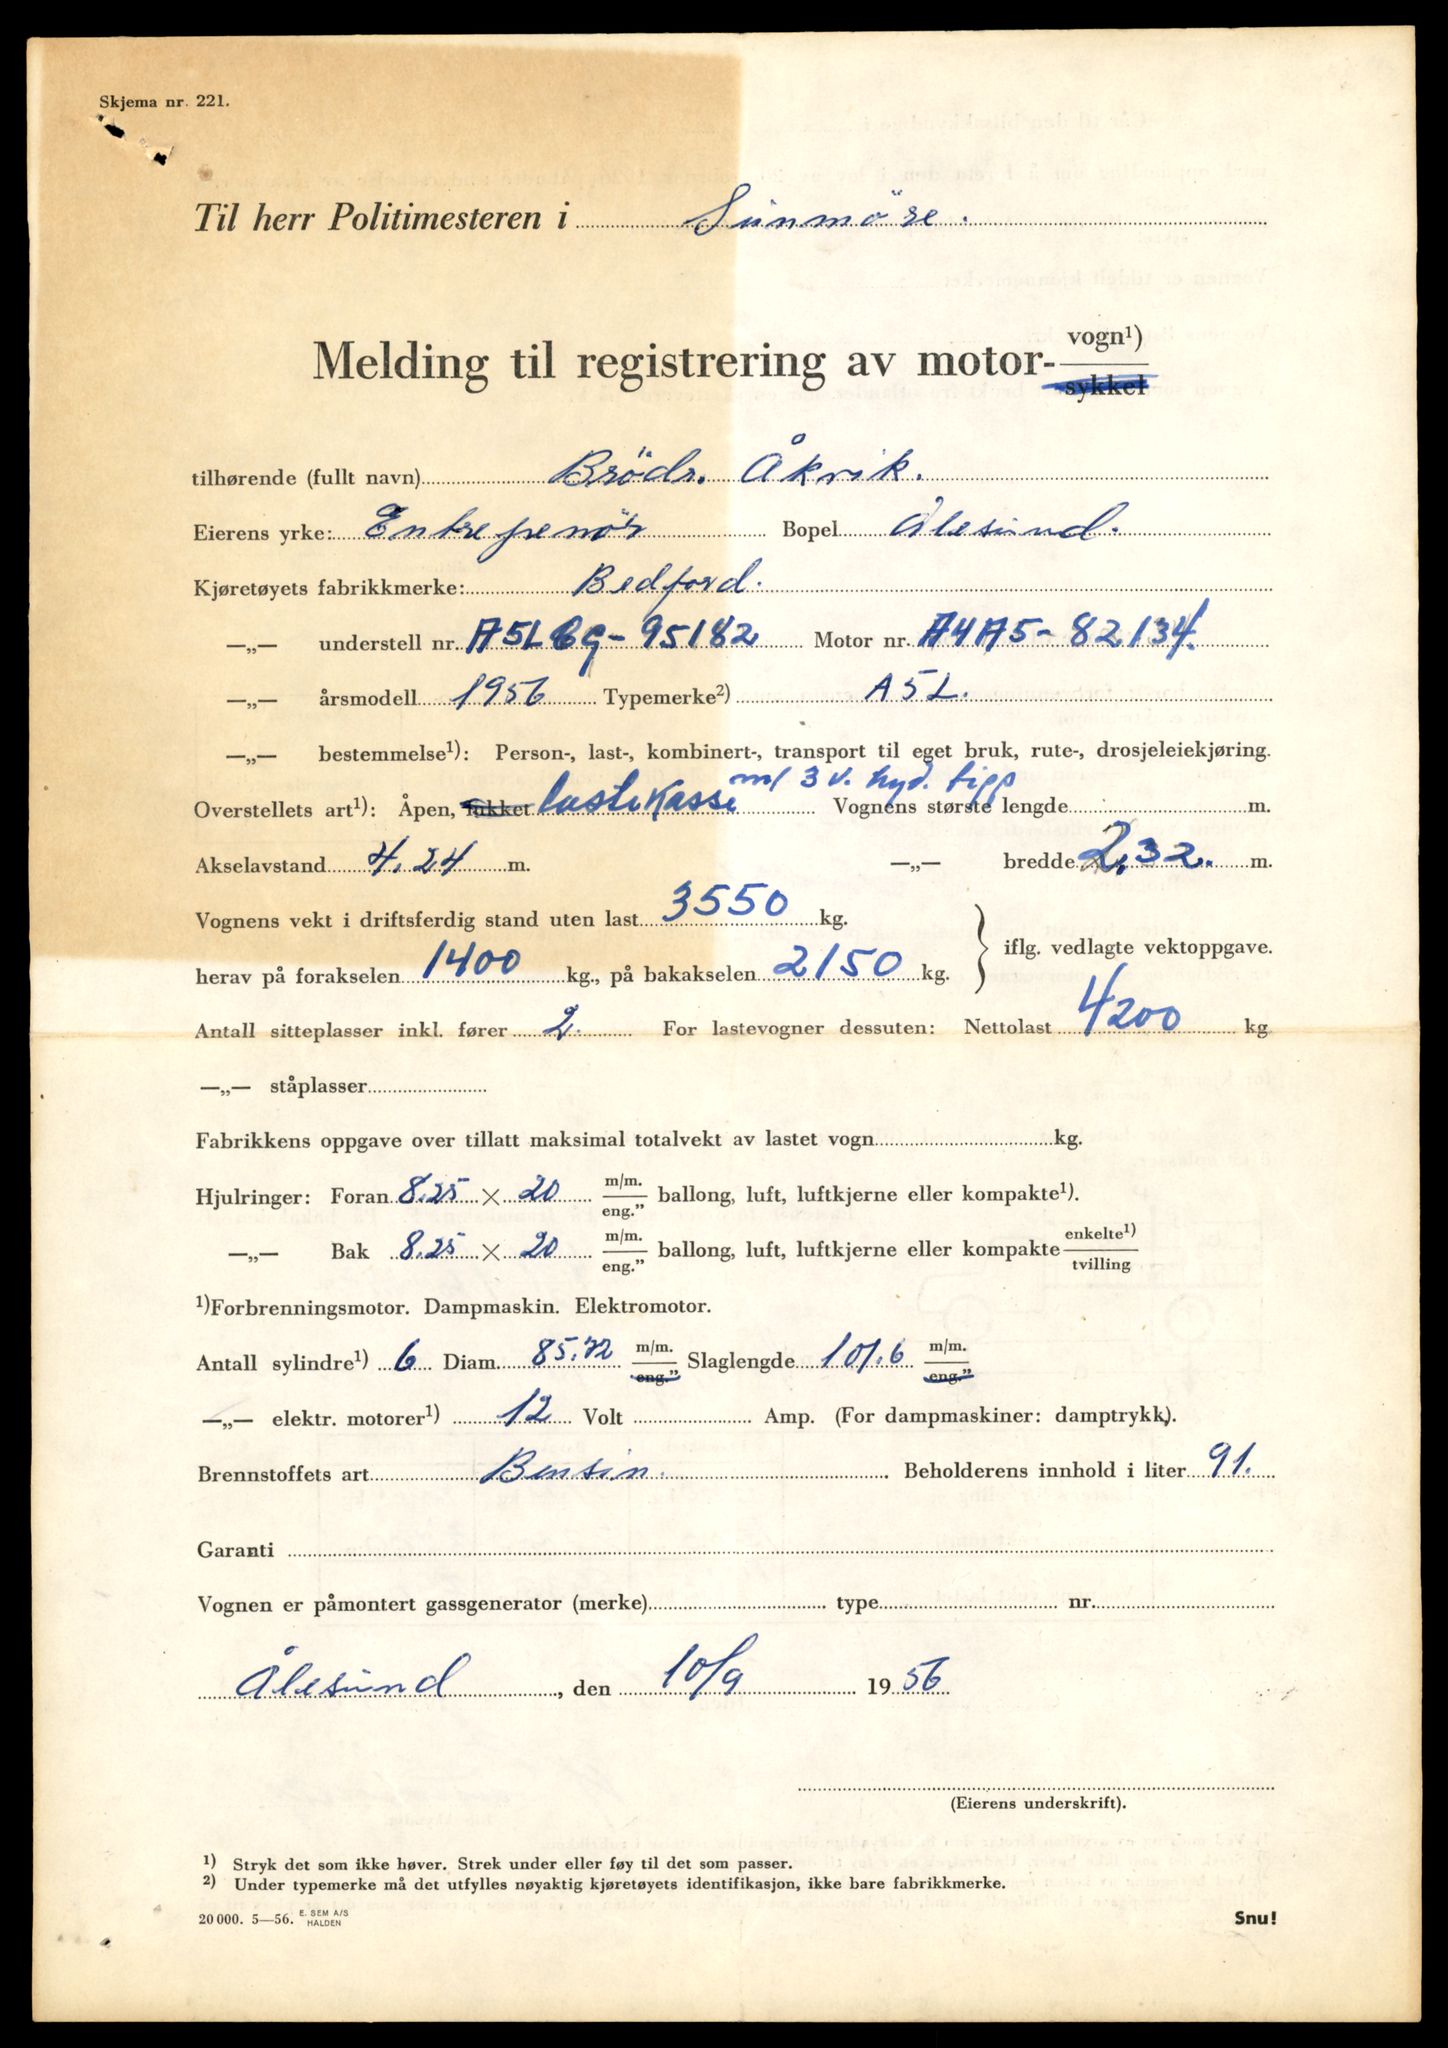 Skjema nr. 221.
Til herr Politimesteren i Sunmöre.
Melding til registrering av motor-vogn¹)
sykkel
tilhørende (fullt navn) Brödr. Åkvik.
Eierens yrke: Entreprenör Bopel Ålesund.
Kjøretøyets fabrikkmerke: Bedford.
—„— understell nr. A5LCG-95182 Motor nr. A4A5-82134.
—„— årsmodell 1956 Typemerke²) A5L.
—„— bestemmelse¹): Person-, last-, kombinert-, transport til eget bruk, rute-, drosjeleiekjøring.
m/ 3 v. hyd. tipp
Overstellets art¹): Åpen, lukket lastekasse Vognens største lengde m.
Akselavstand 4.24 m. —„— bredde 2,32. m.
Vognens vekt i driftsferdig stand uten last 3550 kg.
herav på forakselen 1400 kg., på bakakselen 2150 kg. iflg. vedlagte vektoppgave.
Antall sitteplasser inkl. fører 2. For lastevogner dessuten: Nettolast 4200 kg
—„— ståplasser
Fabrikkens oppgave over tillatt maksimal totalvekt av lastet vogn kg.
Hjulringer: Foran 8.25 × 20 m/m. eng.” ballong, luft, luftkjerne eller kompakte¹).
—„— Bak 8.25 × 20 m/m. eng.” ballong, luft, luftkjerne eller kompakte enkelte¹) tvilling
¹)Forbrenningsmotor. Dampmaskin. Elektromotor.
Antall sylindre¹) 6 Diam. 85.72 m/m. eng.” Slaglengde 101.6 m/m. eng.”
—„— elektr. motorer¹) 12 Volt Amp. (For dampmaskiner: damptrykk).
Brennstoffets art Bensin. Beholderens innhold i liter 91.
Garanti
Vognen er påmontert gassgenerator (merke) type nr.
Ålesund, den 10/9 1956
(Eierens underskrift).
¹) Stryk det som ikke høver. Strek under eller føy til det som passer.
²) Under typemerke må det utfylles nøyaktig kjøretøyets identifikasjon, ikke bare fabrikkmerke.
20 000. 5—56. E. SEM A/S HALDEN Snu!